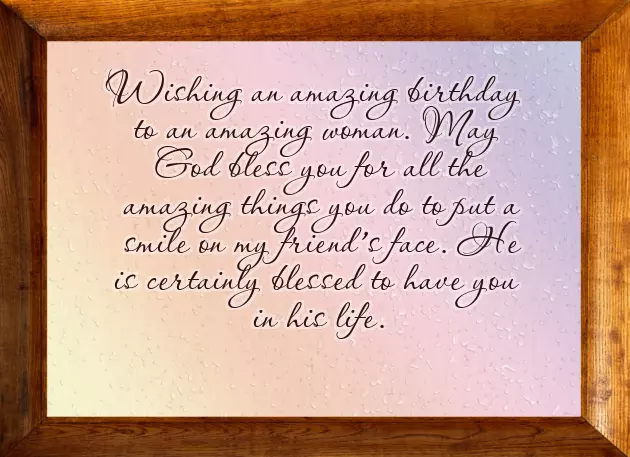 Wishing an amazing birthday
to an amazing woman. May
God bless you for all the
amazing things you do to put a
smile on my friend's face. He
is certainly blessed to have you
in his life.